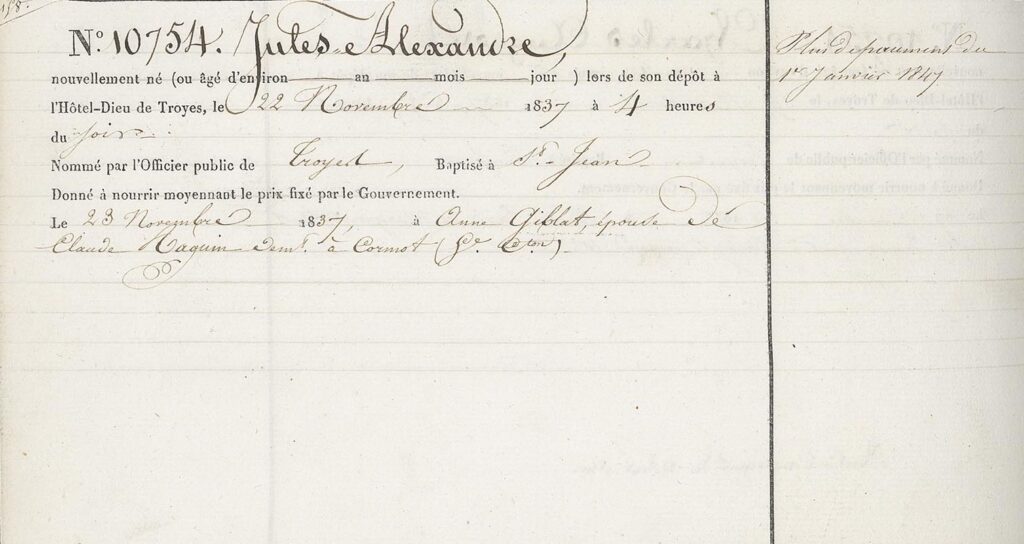 158.
N.º 10754. Jules-Alexandre,
nouvellement né (ou âgé d'environ an mois jour ) lors de son dépôt à
l'Hôtel-Dieu de Troyes, le 22 Novembre 1837 à 4 heures
du soir.
Nommé par l'Officier public de Troyes, Baptisé à St. Jean
Donné à nourrir moyennant le prix fixé par le Gouvernement.
Le 23 Novembre 1837, à Anne Giblat, épouse de
Claude Taquin demt. à Cormot
Plus de paiement du
1er Janvier 1847